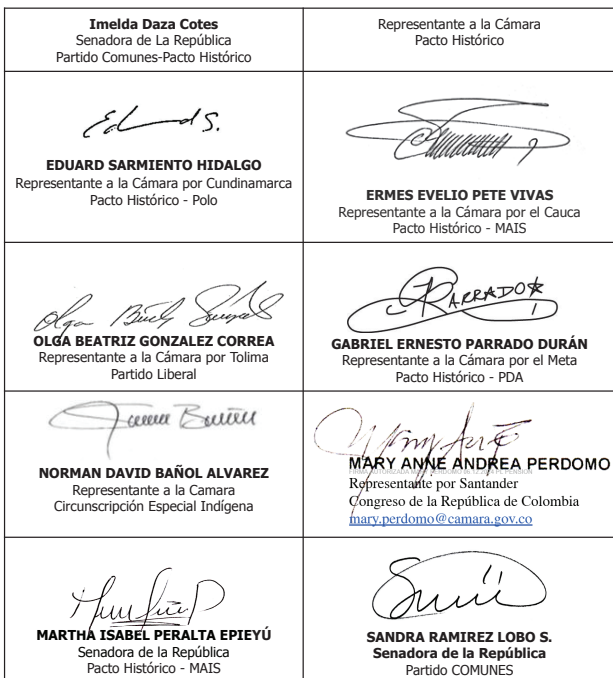 Imelda Daza Cotes
Senadora de La República
Partido Comunes-Pacto Histórico
Representante a la Cámara
Pacto Histórico
EDUARD SARMIENTO HIDALGO
Representante a la Cámara por Cundinamarca
Pacto Histórico - Polo
ERMES EVELIO PETE VIVAS
Representante a la Cámara por el Cauca
Pacto Histórico - MAIS
OLGA BEATRIZ GONZALEZ CORREA
Representante a la Cámara por Tolima
Partido Liberal
PARRADO
GABRIEL ERNESTO PARRADO DURÁN
Representante a la Cámara por el Meta
Pacto Histórico - PDA
NORMAN DAVID BAÑOL ALVAREZ
Representante a la Camara
Circunscripción Especial Indígena
MARY ANNE ANDREA PERDOMO
Representante por Santander
Congreso de la República de Colombia
mary.perdomo@camara.gov.co
MARTHA ISABEL PERALTA EPIEYÚ
Senadora de la República
Pacto Histórico - MAIS
SANDRA RAMIREZ LOBO S.
Senadora de la República
Partido COMUNES